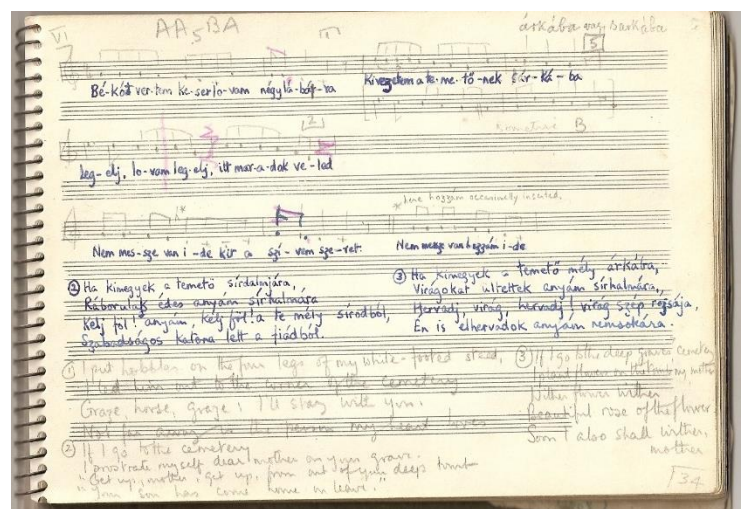 VI
AA5BA
árkába vagy sarkába
5
Bé-kót ver-tem ke-ser lo-vam négy lá-bár-ra
Kivezetem a te-me-tő-nek sár-ká-ba
B
2
Leg-elj, lo-vam leg-elj, itt mar-a-dok ve-led
*here hozzám occasionally inserted.
Nem mes-sze van i-de kit a szí-vem sze-ret.
Nem messze van hozzám i-de
② Ha kimegyek a temető sírdalmjára,
Ráborulok édes anyám sírhalmára
Kelj föl! anyám, kelj föl! a te mély sírodból,
Szabadságos katona lett a fiadból.
③ Ha kimegyek a temető mély árkába,
Virágokat ültettek anyám sírhalmára,
Hervadj, virág, hervadj! virág szép rózsája,
Én is elhervadok anyám nemsokára.
① I put hobbles on the four legs of my white-footed steed,
I led him out to the corner of the cemetery
Graze, horse, graze! I'll stay with you.
Not far away is the person my heart loves
② If I go to the cemetery
I prostrate myself dear mother on your grave.
"Get up, mother, get up, from out of your deep tomb
Your son has come home on leave."
③ If I go to the deep graves cemetery
I plant flowers on the tomb my mother
Wither flower wither
Beautiful rose of the flower
Soon I also shall wither,
mother
34